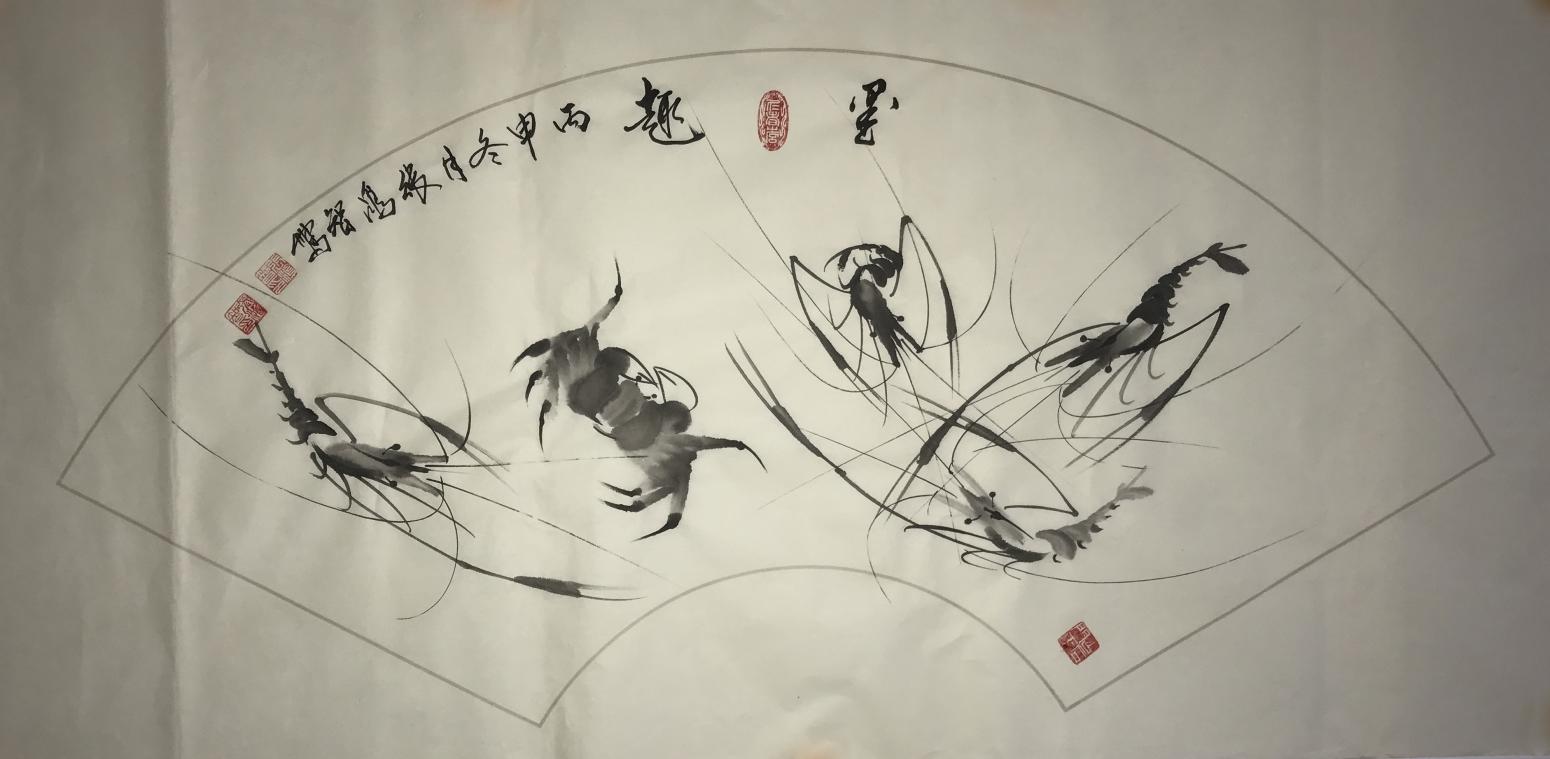 墨趣
丙申冬月 緣鴻智寫